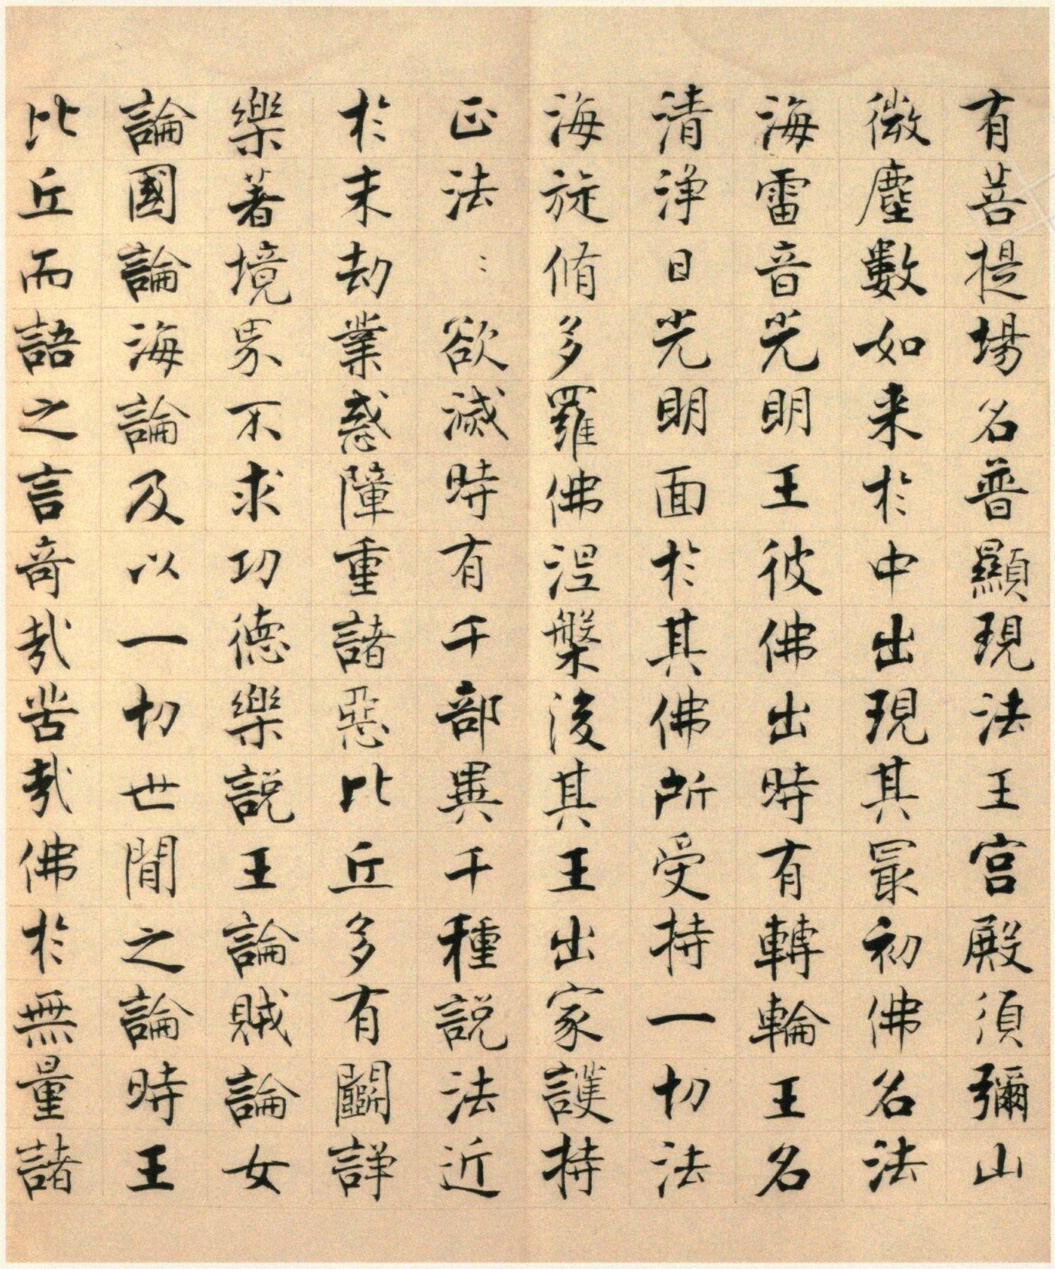 有菩提場名普顯現法王宫殿須彌山
微塵數如来於中出現其冣初佛名法
海雷音光明王彼佛出時有轉輪王名
清淨日光明面於其佛所受持一切法
海旋脩多羅佛涅槃後其王出家護持
正法⺀欲滅時有千部異千種説法近
於末劫業惑障重諸惡比丘多有鬬諍
樂著境界不求功德樂説王論賊論女
論國論海論及以一切世間之論時王
比丘而語之言奇哉苦哉佛於無量諸